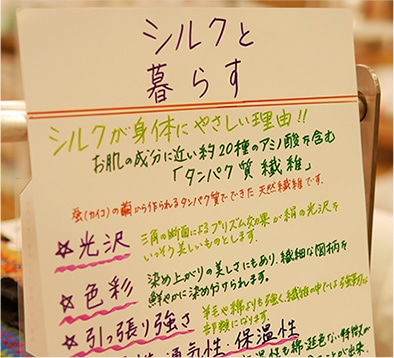 シルクと
暮らす
シルクが身体にやさしい理由!!
お肌の成分に近い約20種のアミノ酸を含む
「タンパク質繊維」
蚕(カイコ)の繭から作られるタンパク質でできた天然繊維です.
☆光沢 三角の断面によるプリズム効果が絹の光沢を
いっそう美しいものとします.
☆色彩 染め上がりの美しさにもあり、繊細な図柄を
鮮やかに染め分けられます.
☆引っ張り強さ 羊毛や綿よりも強く、繊維の中でも
部類になります.
通気性・保温性